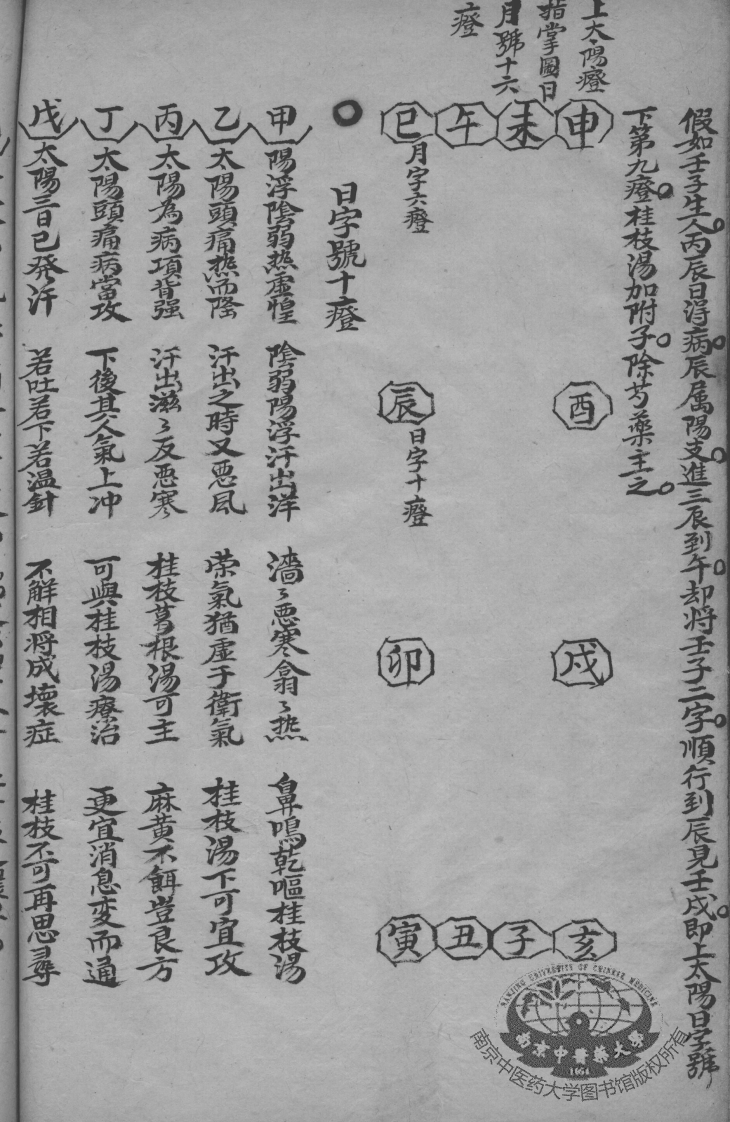 假如壬子生人丙辰日得病辰属陽支進三辰到午却将壬子二字順行到辰見壬戌即上太陽日字號
下第九癥桂枝湯加附子除芍藥主之
上太陽癥
指掌圖日
月號十六
癥
申
未
午
巳
月字六癥
酉
辰
日字十癥
戌
卯
亥
子
丑
寅
日字號十癥
甲 陽浮陰弱热虛惶 陰弱陽浮汗出洋 濇〻悪寒翕〻热 鼻鳴乾嘔桂枝湯
乙 太陽頭痛热而隂 汗出之時又悪風 荣氣猶虛于衛氣 桂枝湯下可宜攻
丙 太陽為病項背强 汗出滋〻反悪寒 桂枝葛根湯可主 麻黄不餌豈良方
丁 太陽頭痛病當攻 下後其人氣上冲 可與桂枝湯療治 更宜消息变而通
戊 太陽三日已發汗 若吐若下若温針 不觧相将成壊症 桂枝不可再思尋
NANJING UNIVERSITY OF CHINESE MEDICINE
南京中醫藥大學
1954
南京中医药大学图书馆版权所有